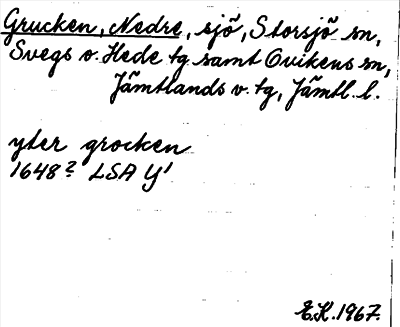 Grucken, Nedre, sjö, Storsjö sn,
Svegs o. Hede tg samt Ovikens sn,
Jämtlands v. tg, Jämtl. l.
yter grocken
1648? LSA Y¹
E.K. 1967.